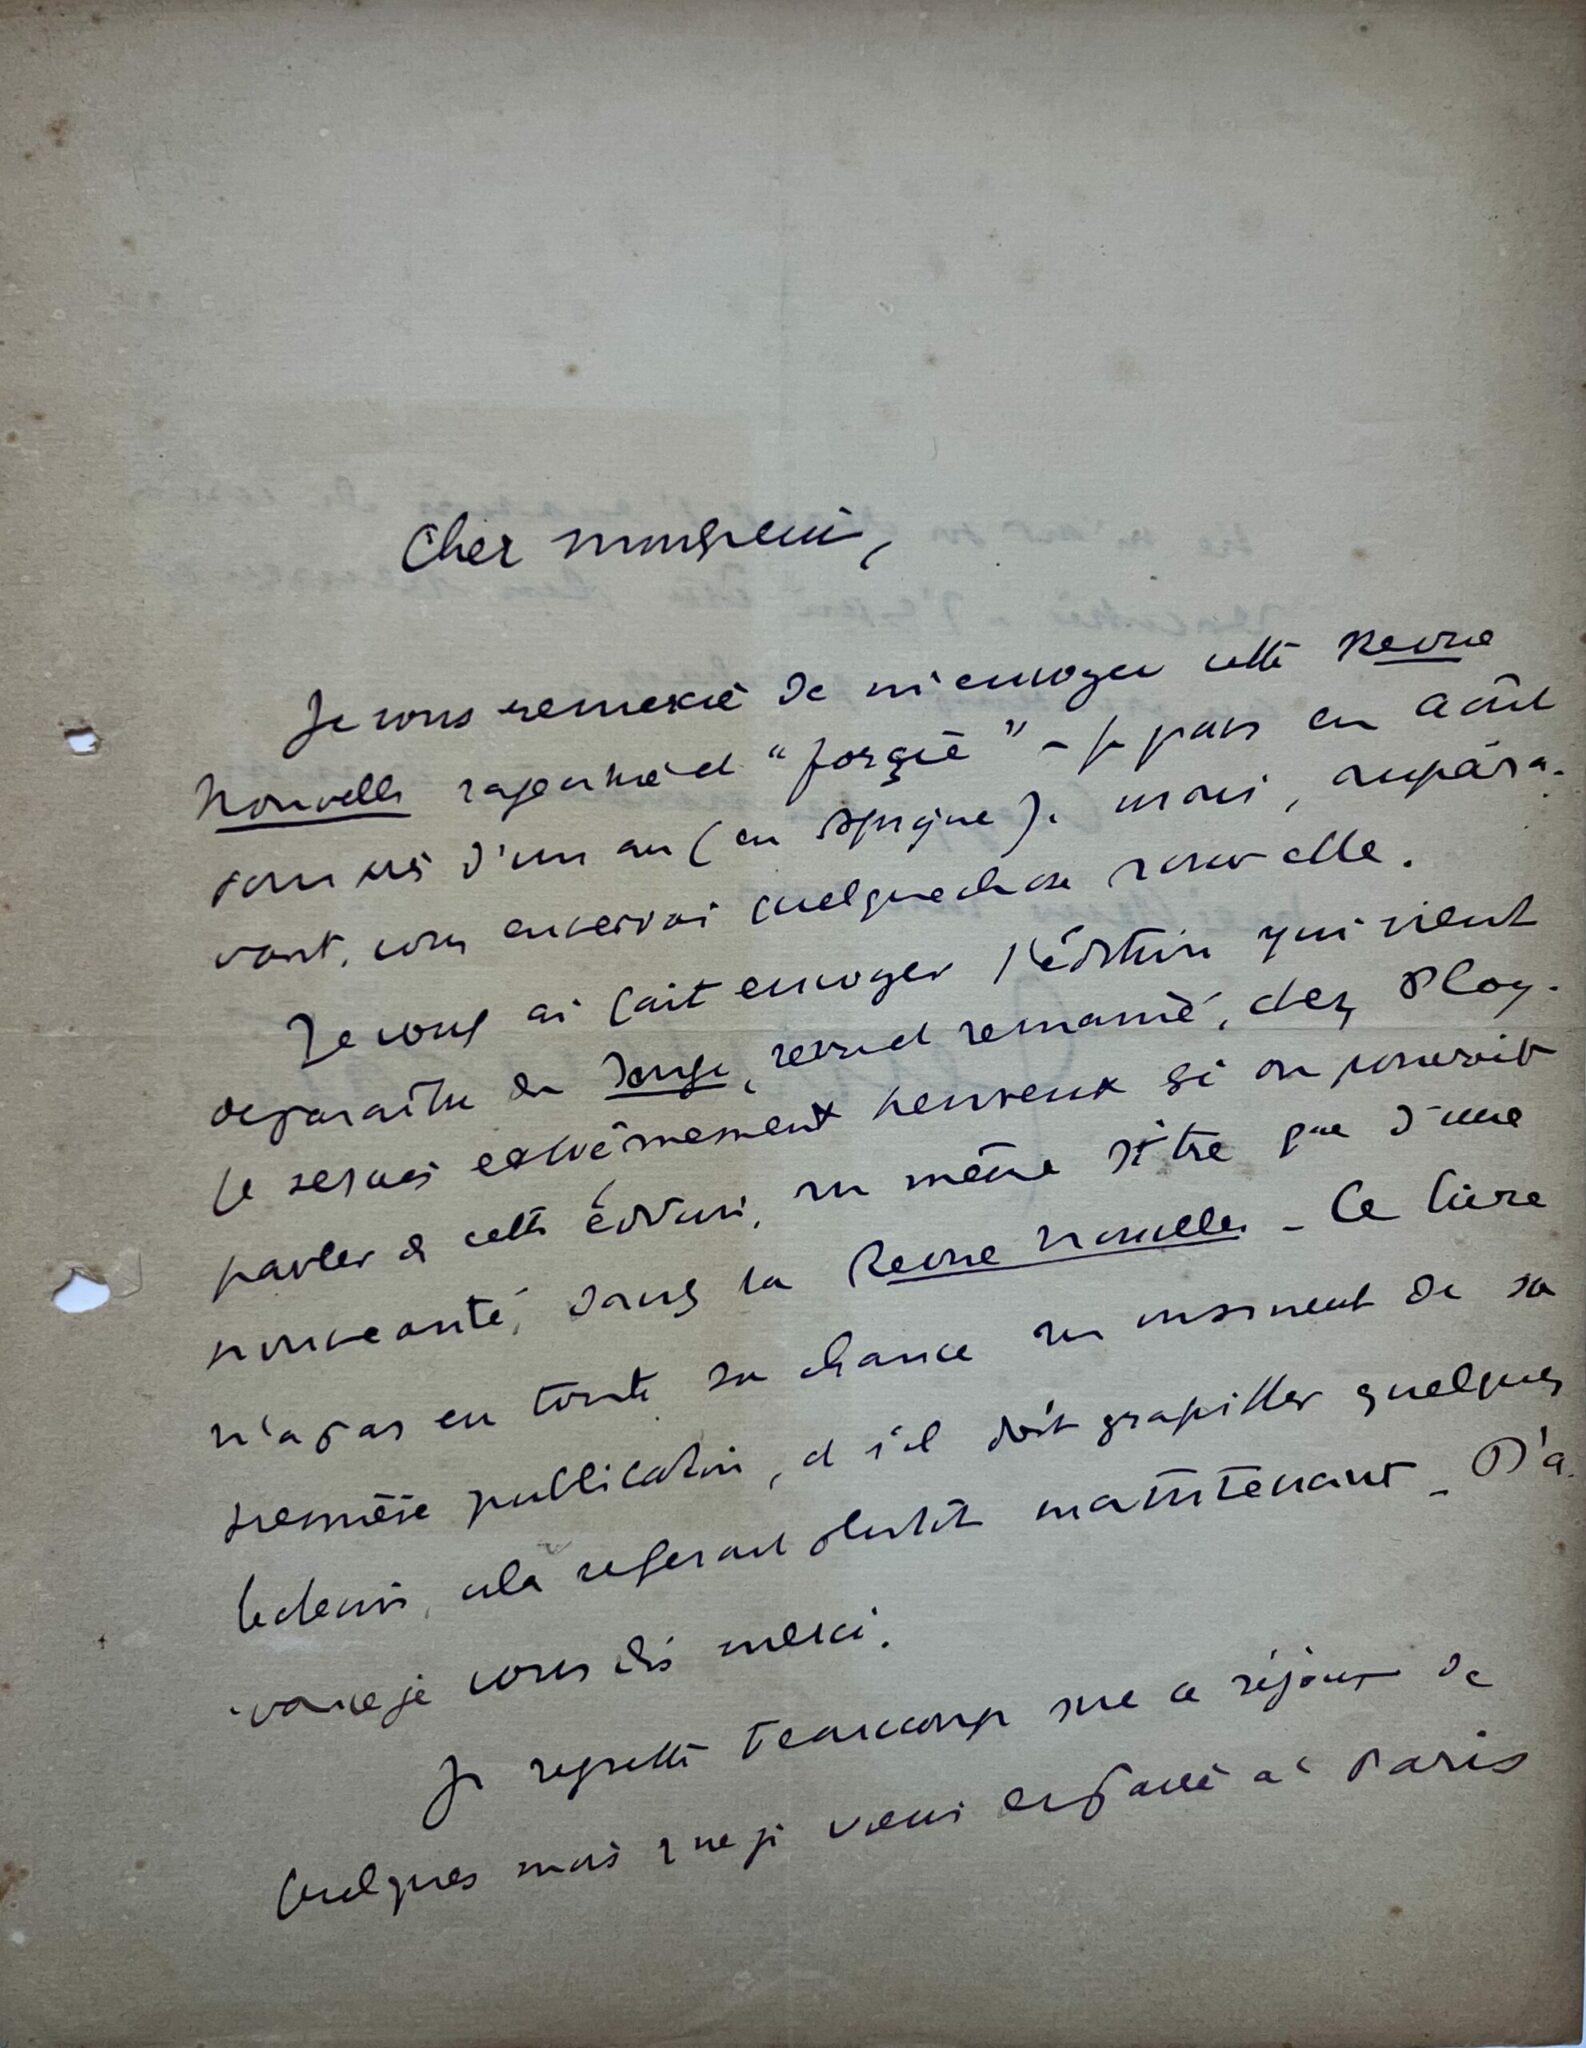 Cher monsieur,
Je vous remercie de m'envoyer cette Revue
Nouvelle rajeunie et "forcie" – je pars en août
pour près d'un an (en Espagne). mais, aupara-
vant, vous enverrai quelque chose nouvelle.
Je vous ai fait envoyer l'édition qui vient
de paraître de Songe, revue et remaniée, chez Plon.
Je serais extrêmement heureux si on pouvait
parler de cette édition, au même titre que d'une
nouveauté, dans la Revue Nouvelle – Ce livre
n'a pas eu toute sa chance au moment de sa
première publication, et s'il doit grapiller quelques
lecteurs, cela se ferait plutôt maintenant – D'a-
vance je vous dis merci.
Je regrette beaucoup que ce séjour de
quelques mois que je viens de faire à Paris